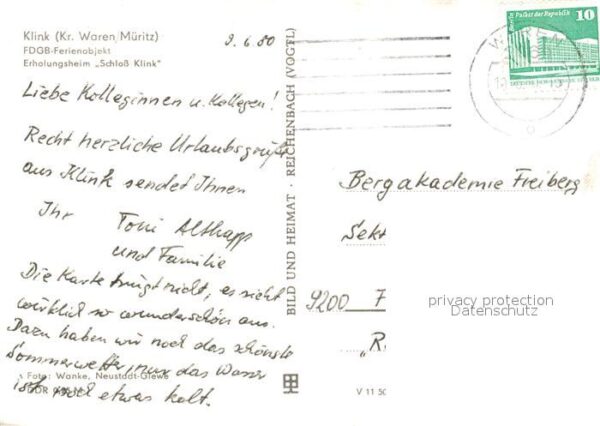 Klink (Kr. Waren/Müritz)
FDGB-Ferienobjekt
Erholungsheim „Schloß Klink"
9.6.80
Liebe Kolleginnen u. Kollegen!
Recht herzliche Urlaubsgrüße
aus Klink sendet Ihnen
Ihr Toni
und Familie
Die Karte trügt nicht, es sieht
wirklich so wunderschön aus.
Dazu haben wir noch das schönste
Sommerwetter, nur das Wasser
ist noch etwas kalt.
Foto: Wanke, Neustadt-Glewe
BILD UND HEIMAT · REICHENBACH (VOGTL)
V 11 50
Palast der Republik 10
WAREN
Bergakademie Freiberg
Sekt
9200 F
„R
privacy protection
Datenschutz